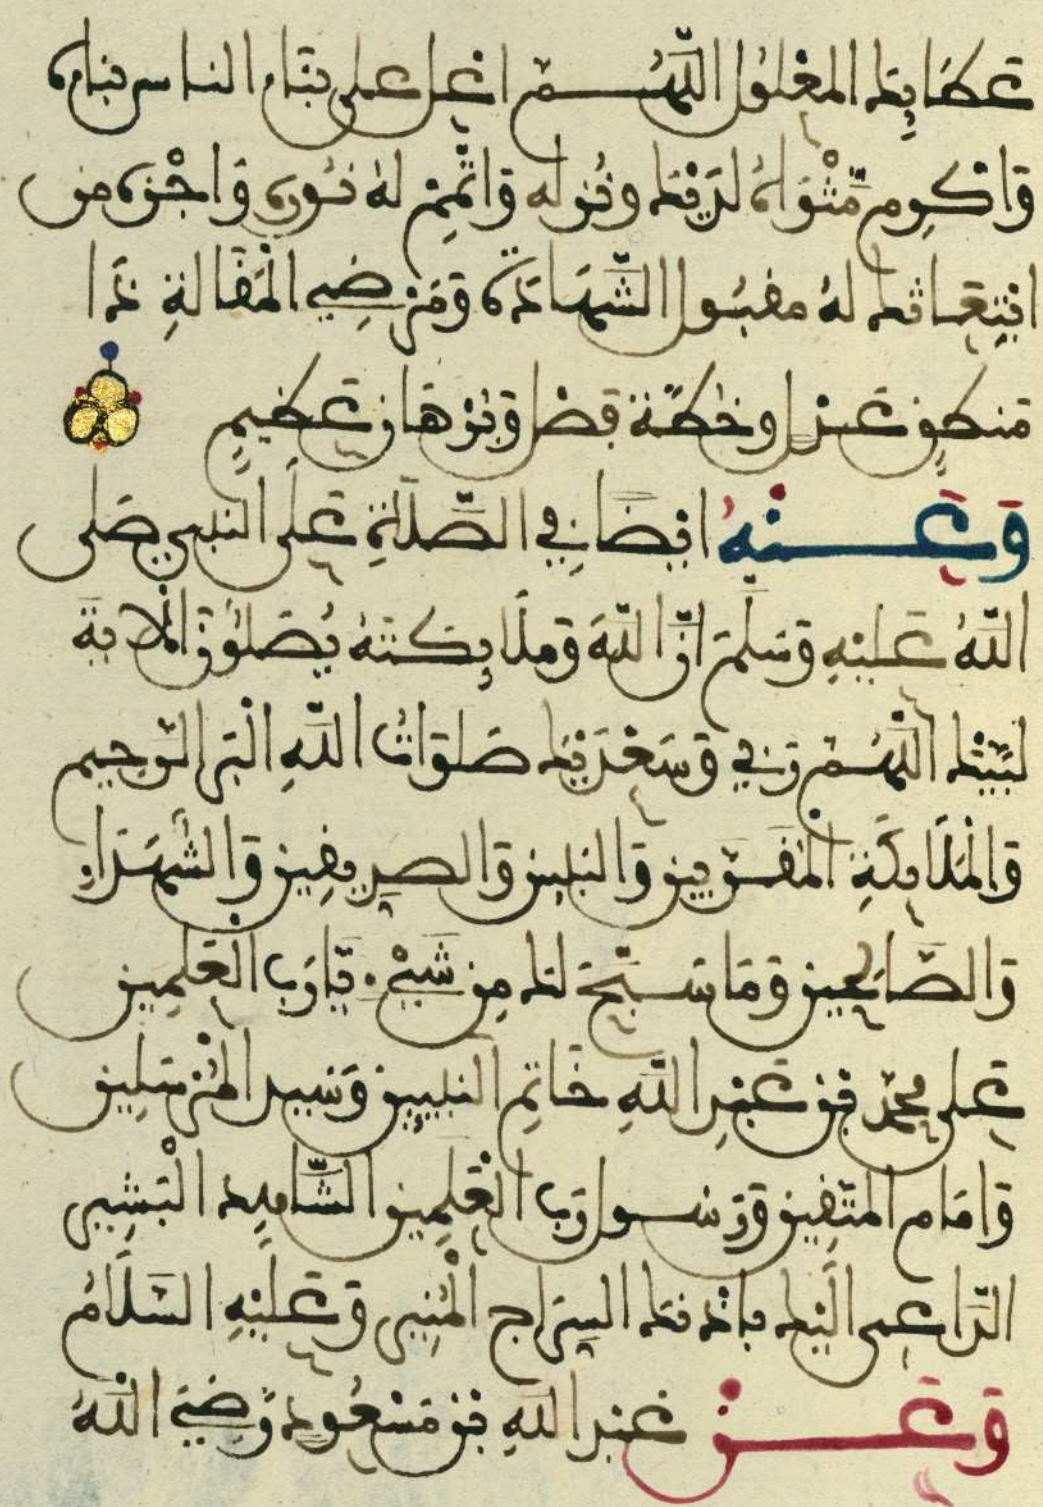 عطايك المعلول اللهم اعل على بناء الناس بناءه
واكرم مثواه لديك ونزله واتمم له نوره واجزه من
ابتعاثك له مقبول الشهادة ومرضي المقالة ذا
منطق عدل وخطة فصل وبرهان عظيم
وعنه ايضا في الصلاة على النبي صلى
الله عليه وسلم ان الله وملايكته يصلون الاية
لبيك اللهم ربي وسعديك صلوات الله البر الرحيم
والملايكة المقربين والنبيين والصديقين والشهداء
والصالحين وما سبح لك من شيء يا رب العلمين
على محمد بن عبد الله خاتم النبيين وسيد المرسلين
وامام المتقين ورسول رب العلمين الشاهد البشير
الداعي اليك باذنك السراج المنير وعليه السلام
وعن عبد الله بن مسعود رضي الله